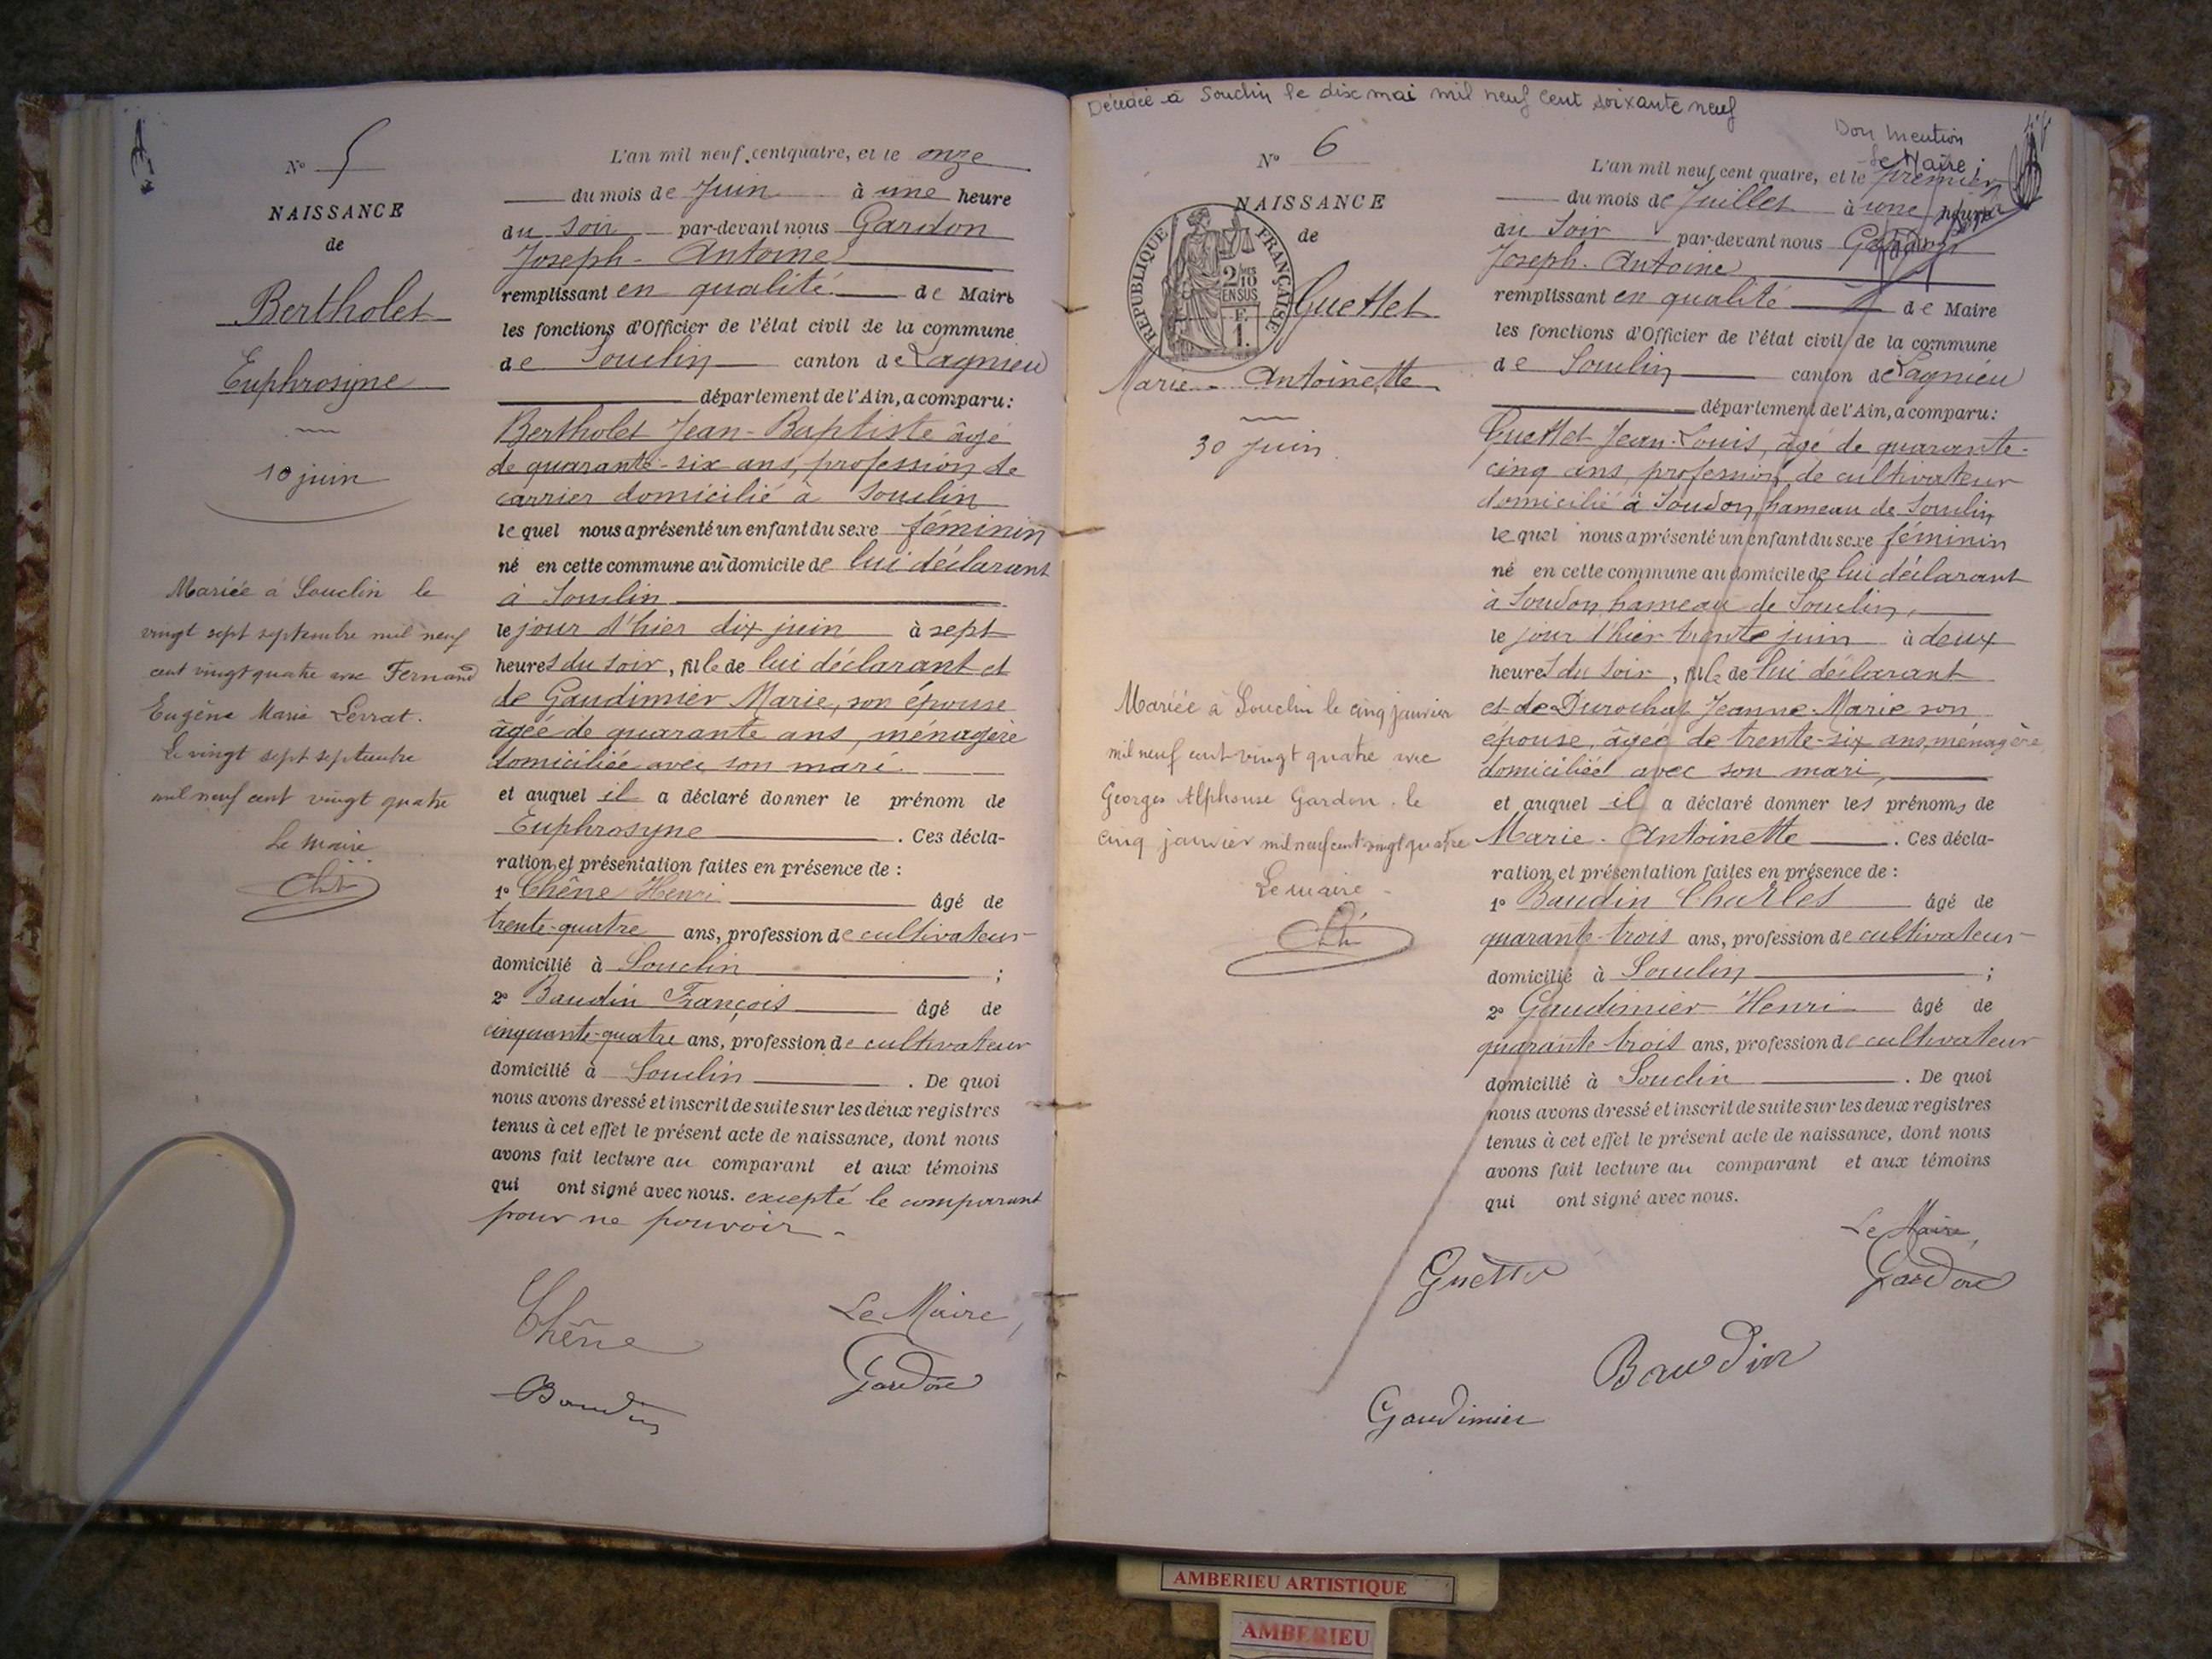 N° 5
NAISSANCE
de
Bertholet
Euphrosyne
10 juin
Mariée à Souclin le
vingt sept septembre mil neuf
cent vingt quatre avec Fernand
Eugène Marie Serrat.
Le vingt sept septembre
mil neuf cent vingt quatre
Le Maire
L'an mil neuf centquatre, et le onze
du mois de Juin à une heure
du soir par-devant nous Gardon
Joseph-Antoine
remplissant en qualité de Maire
les fonctions d'Officier de l'état civil de la commune
de Souclin canton de Lagnieu
département de l'Ain, a comparu:
Bertholet Jean-Baptiste âgé
de quarante-six ans, profession de
carrier domicilié à Souclin
lequel nous a présenté un enfant du sexe féminin
né en cette commune au domicile de lui déclarant
à Souclin
le jour d'hier dix juin à sept
heures du soir, fille de lui déclarant et
de Gaudimier Marie, son épouse
âgée de quarante ans, ménagère
domiciliée avec son mari
et auquel il a déclaré donner le prénom de
Euphrosyne. Ces décla-
ration et présentation faites en présence de :
1° Chêne Henri âgé de
trente-quatre ans, profession de cultivateur
domicilié à Souclin ;
2° Baudin François âgé de
cinquante-quatre ans, profession de cultivateur
domicilié à Souclin. De quoi
nous avons dressé et inscrit de suite sur les deux registres
tenus à cet effet le présent acte de naissance, dont nous
avons fait lecture au comparant et aux témoins
qui ont signé avec nous. excepté le comparant
pour ne pouvoir.
Chêne
Le Maire,
Gardon
Baudin
Décédée à Souclin le dix mai mil neuf cent soixante neuf
Don mention
Le Maire
N° 6
NAISSANCE
de
REPUBLIQUE FRANÇAISE
2/10
EN SUS
F.
1.
Guettet
Marie-Antoinette
30 juin
Mariée à Souclin le cinq janvier
mil neuf cent vingt quatre avec
Georges Alphonse Gardon. le
cinq janvier mil neuf cent vingt quatre
Le maire
L'an mil neuf cent quatre, et le premier
du mois de Juillet à une heure
du Soir par-devant nous Gardon
Joseph-Antoine
remplissant en qualité de Maire
les fonctions d'Officier de l'état civil de la commune
de Souclin canton de Lagnieu
département de l'Ain, a comparu:
Guettet Jean-Louis, âgé de quarante-
cinq ans, profession de cultivateur
domicilié à Soudon, hameau de Souclin
lequel nous a présenté un enfant du sexe féminin
né en cette commune au domicile de lui déclarant
à Soudon hameau de Souclin,
le jour d'hier trente juin à deux
heures du soir, fille de lui déclarant
et de Durochat Jeanne-Marie son
épouse, âgée de trente-six ans, ménagère
domiciliée avec son mari,
et auquel il a déclaré donner les prénoms de
Marie-Antoinette. Ces décla-
ration et présentation faites en présence de :
1° Baudin Charles âgé de
quarante-trois ans, profession de cultivateur
domicilié à Souclin ;
2° Gaudimier Henri âgé de
quarante-trois ans, profession de cultivateur
domicilié à Souclin. De quoi
nous avons dressé et inscrit de suite sur les deux registres
tenus à cet effet le présent acte de naissance, dont nous
avons fait lecture au comparant et aux témoins
qui ont signé avec nous.
Le Maire,
Gardon
Guettet
Baudin
Gaudimier
AMBERIEU ARTISTIQUE
AMBERIEU